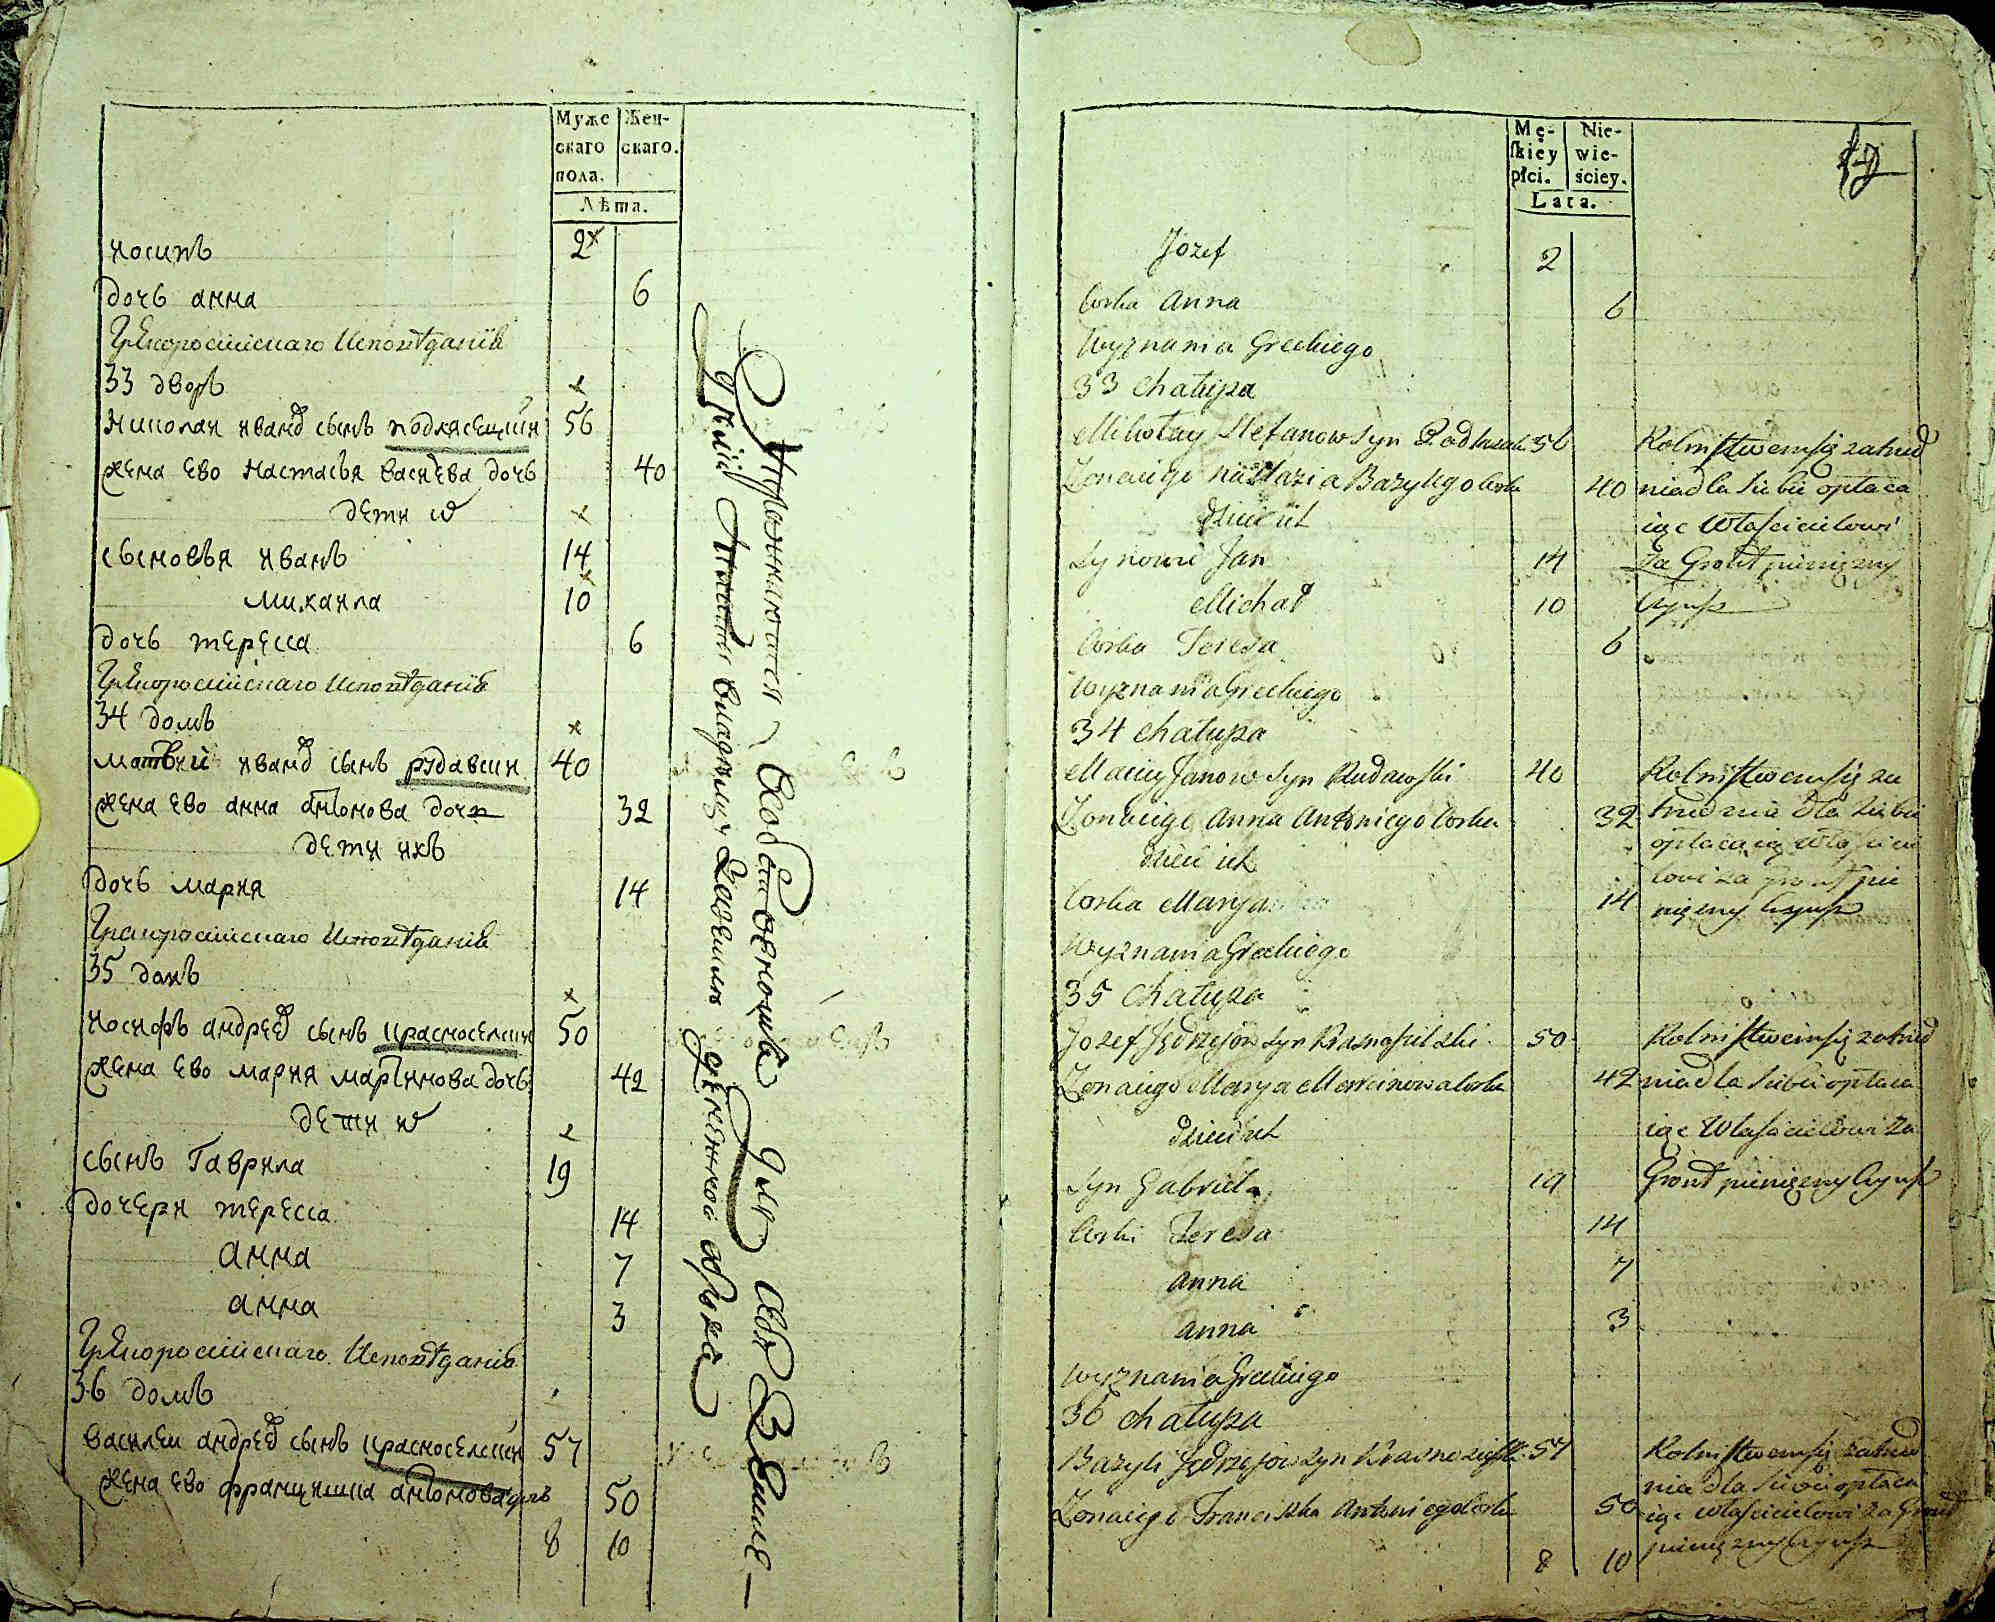 Муже Жен-
скаго скаго.
пола.
Лѣта.
иосипъ 2
дочь анна 6
Грекоросийскаго Исповѣданія
33 дворъ
Николаи иванов сынъ подлясецкии 56
жена ево настасья васильева дочь 40
дети их
сыновья иванъ 14
михаила 10
дочь тересса 6
Грекоросийскаго Исповѣданія
34 домъ
матвей иванов сынъ рудавски 40
жена ево анна антонова дочь 32
дети ихъ
дочь мария 14
Грекоросийскаго Исповѣданія
35 домъ
иосифъ андреев сынъ красноселски 50
жена ево мария мартинова дочь 42
дети их
сынъ Гаврила 19
дочери тересса 14
анна 7
анна 3
Грекоросийскаго Исповѣданія
36 домъ
василеи андреев сынъ красноселски 57
жена ево францишка антонова дочь 50
8 10
Упражняются для себя
владельцу денежной оброкъ
Mę- Nie-
skiey wie-
płci. ściey.
Lata.
Jozef 2
Corka Anna 6
Wyznania Greckiego
33 Chałupa
Mikołay Stefanow Syn 56 Rolnistwem się zatrud
Zona iego Nastazia Bazylego Corka 40 nia dla siebie opłaca
dzieci ich iąc Właścicielowi
Synowie Jan 14 za Gront pieniężny
Michał 10 Czynsz
Corka Teresa 6
Wyznania Greckiego
34 Chałupa
Maciey Janow Syn Rudawski 40 Rolnistwem się za
Zona iego Anna Antoniego Corka 32 trudnia dla siebie
dzieci ich opłacaiąc Właściciе
Corka Marya 14 lowi za gront pie
niężny Czynsz
Wyznania Greckiego
35 Chałupa
Jozef Jędrzejow Syn Krasnosielski 50 Rolnistwem się zatrud
Zona iego Marya Marcinowa Corka 42 nia dla siebie opłaca
dzieci ich iąc Właścicielowi za
Syn Gabriel 19 Gront pieniężny Czynsz
Corki Teresa 14
Anna 7
Anna 3
Wyznania Greckiego
36 Chałupa
Bazyli Jędrzejow Syn Krasnosielski 57 Rolnistwem się zatrud
nia dla siebie opłaca
Zona iego Franciszka Antoniego Corka 50 iąc Właścicielowi za Gront
8 10 pieniężny Czynsz